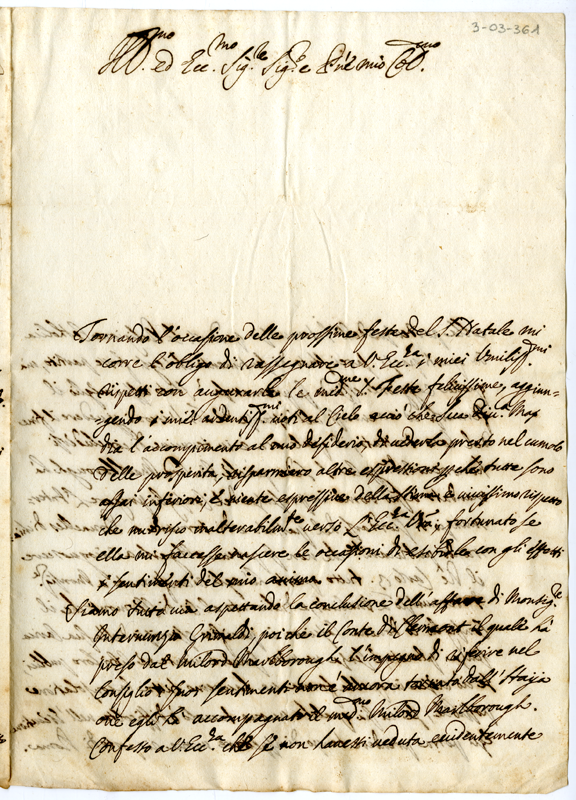 3-03-361
Ill.mo ed Ecc.mo Sig.re Sig.re e P'ne mio Col.mo
Tornando l'occasione delle prossime feste del S. Natale mi
corre l'obligo di rassegnare a V. Ecc.za i miei Umiliss.mi
rispetti con augurarle le med.me S. Feste felicissime, aggiun=
gendo i miei ardentiss.mi voti al Cielo acciò che Sua Div.a Maj
dia l'accompimento al mio desiderio, di vederla presto nel cumolo
delle prosperità, risparmiero altre espressioni perche tutte sono
assai inferiori, e niente espressive della stima, e vivissimo rispetto
che mi preggio inalterabilm.te verso l'Ecc.za V.ra; fortunato se
ella mi facesse nascere le occasioni di con gli effetti
i sentimenti del mio animo.
Siamo tutta via aspettando la conclusione dell'affare di Monsig.re
Internunzio Grimaldi poiche il Conte di Clermont il quale hà
preso dal Milord Marlborough l'impegno di riferire nel
Consiglio i suoi sentimenti non è ancora tornato dall'Haija
ove egli hà accompagnato il med.mo Milord Marlborough.
Confesso a V. Ecc.za che se io non havessi veduta evidentemente